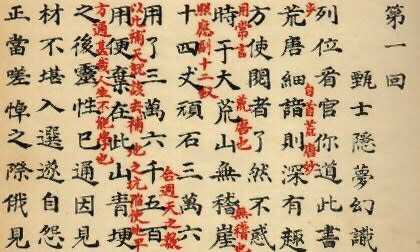 第一回
甄士隱夢幻識
列位看官你道此書
步
自首荒唐妙
荒唐細諳則深有趣
方使閱者了然不惑
用常言
荒唐也
時于大荒山無稽崖
無稽也
照應副十二釵
十四丈頑石三萬六
合週天之數
用了三萬六千五百
以此補天就該去補地之坑陷使地平
用便棄在此山青埂
方通甚哉人生不能學也
之後靈性已通因見
材不堪入選遂自怨
正當嗟悼之際俄見